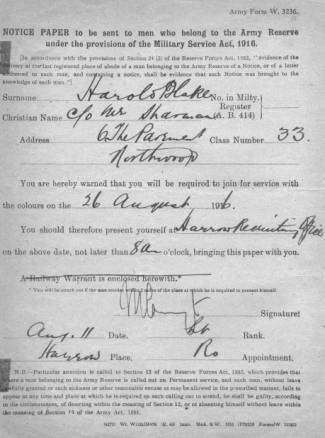 Army Form W. 3236.
NOTICE PAPER to be sent to men who belong to the Army Reserve
under the provisions of the Military Service Act, 1916.
[In accordance with the provisions of Section 24 (2) of the Reserve Forces Act, 1882, "evidence of the
delivery at the last registered place of abode of a man belonging to the Army Reserve of a Notice, or of a letter
addressed to such man, and containing a notice, shall be evidence that such Notice was brought to the
knowledge of such man."]
Surname Harold Blake No. in Milty.
Register
Christian Name c/o Mr Sharman (A. B. 414)
Address 6 The Pavement Class Number 33.
Northwood
You are hereby warned that you will be required to join for service with
the colours on the 26 August 1916.
You should therefore present yourself at Harrow Recruiting Office
on the above date, not later than 8am o'clock, bringing this paper with you.
A Railway Warrant is enclosed herewith.*
Signature
Aug. 11 Date. Rank.
Harrow Place, RO Appointment.
N.B.—Particular attention is called to Section 15 of the Reserve Forces Act, 1882, which provides that
where a man belonging to the Army Reserve is called out on Permanent service, and such man, without leave
lawfully granted or such sickness or other reasonable excuse as may be allowed in the prescribed manner, fails to
appear at any time and place at which he is required on such calling out to attend, he shall be guilty, according
to the circumstances, of deserting within the meaning of Section 12, or of absenting himself without leave within
the meaning of Section of the Army Act, 1881.
Forms/W. 3236/3